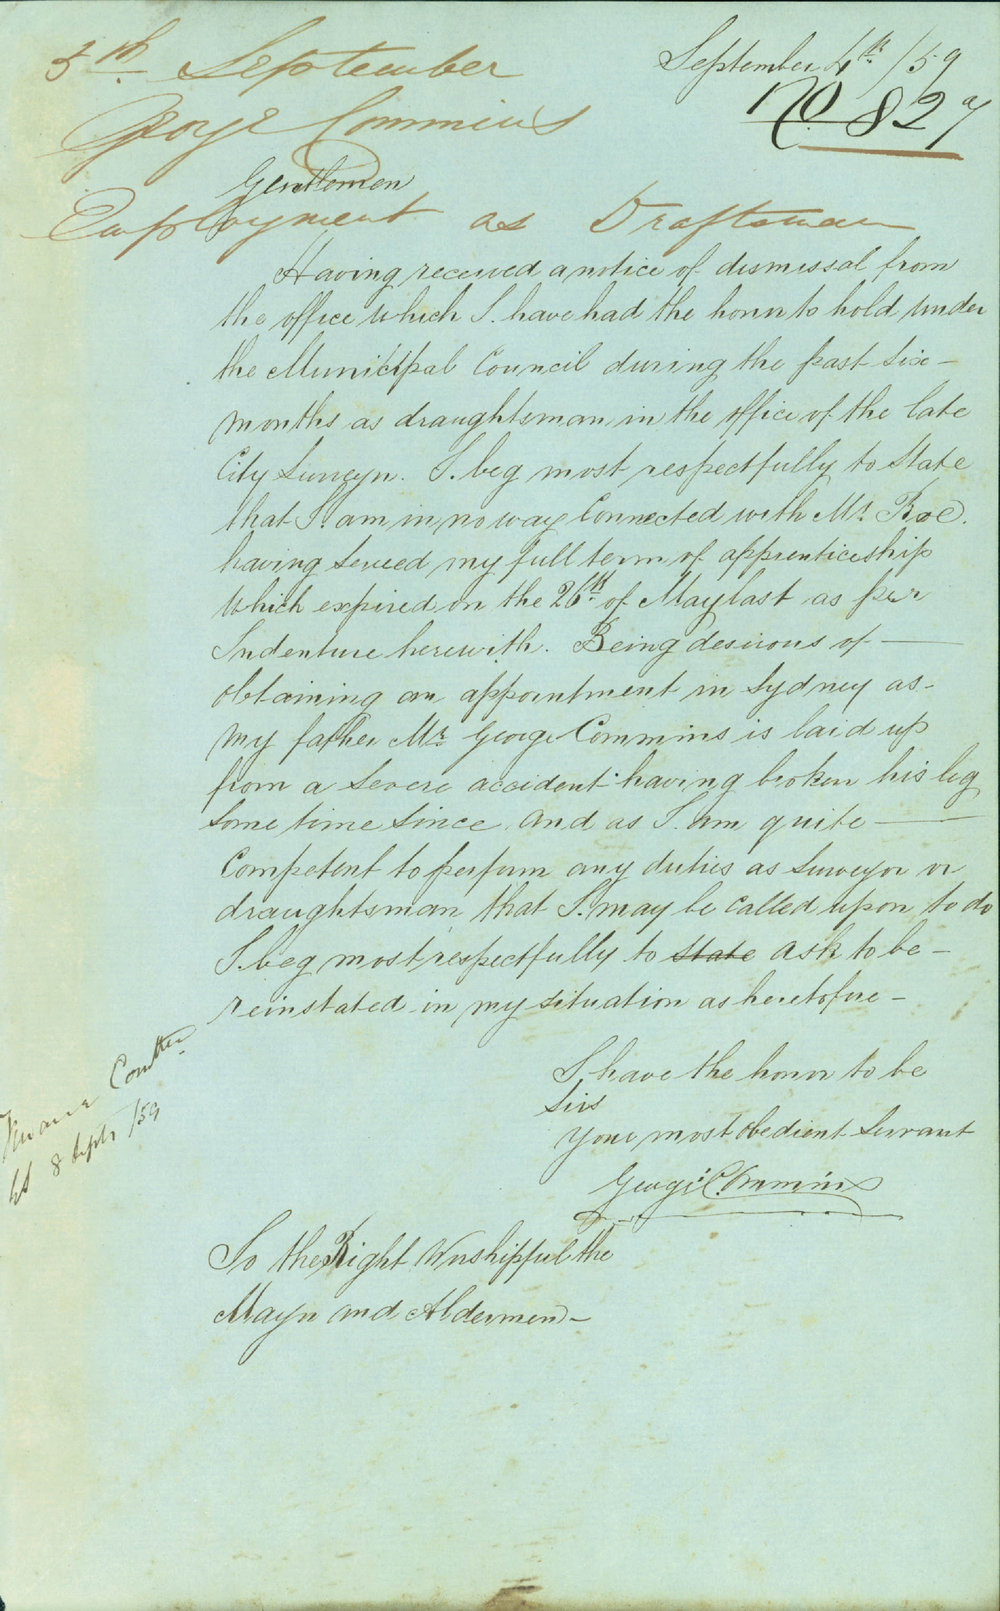 September 4th /59
5th September
No 827
George Commins
Gentlemen
Employment as Draftsman
Having received a notice of dismissal from
the office which I. have had the honor to hold under
the Municipal Council during the past six –
months as draughtsman in the office of the late
City Surveyor. I. beg most respectfully to State
that I. am in no way Connected with Mr. Roe.
having served my full term of apprenticeship
which expired on the 26th of May last as per
Indenture herewith. Being desirous of –
obtaining an appointment in Sydney as –
my father Mr George Commins is laid up
from a severe accident having broken his leg
some time since and as I. am quite –
Competent to perform any duties as Surveyor or
draughtsman that I. may be called upon to do
I. beg most respectfully to ~~state~~ ask to be –
reinstated in my situation as heretofore –
I have the honor to be
Sirs
Your most obedient Servant
George Commins
Finance Comttee
8 Septr /59
To the Right Worshipful the
Mayor and Aldermen –